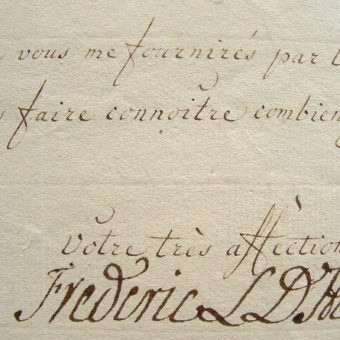 vous me fournirés par l
faire connoître combien
Votre très affection
Frederic L D H